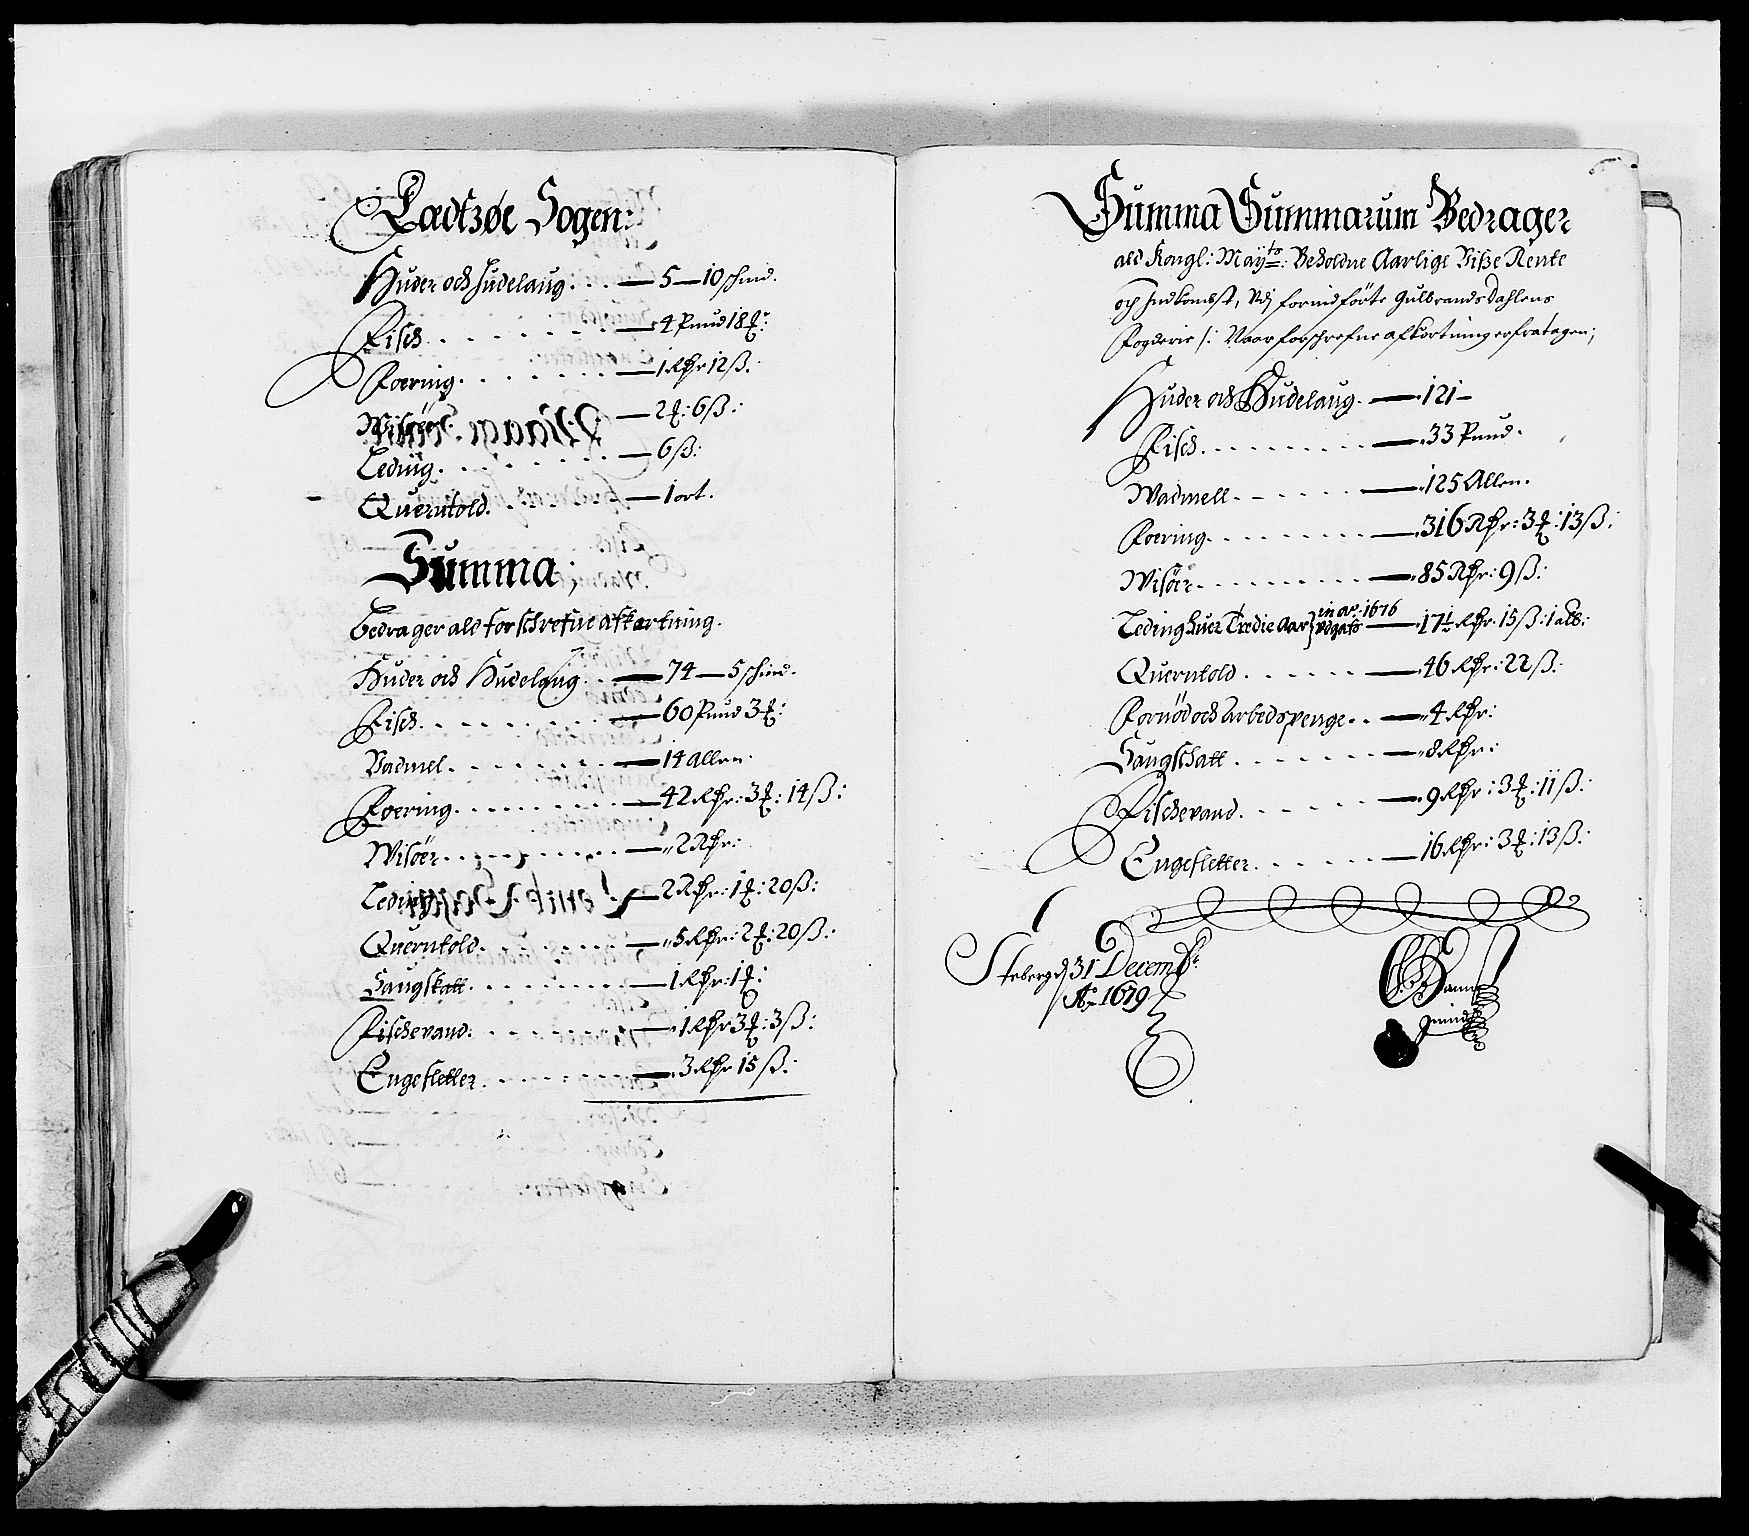 Ladtzøe Sogen:
Huder och Hudelaug. . . . — 5 — 10 schind.
Fisch. . . . . — 4 Pund 18 ℔:
Foering. . . . . — 1 Rdr 12 ß:
Wisöer — 2 ℔: 6 ß:
Leding. . . . . — 6 ß:
Querntold. . . . — 1 ort.
Summa;
bedrager all forschrefne afkortning.
Huder och Hudelaug. . — 74 — 5 schind.
Fisch. . . . . . — 60 Pund 3 ℔:
Vadmel. . . . . . — 14 Allen.
Foering. . . . . . — 42 Rdr: 3 ℔: 14 ß:
Wisöer. . . . . . — 2 Rdr:
Leding — 2 Rdr: 1 ℔: 20 ß:
Querntold. . . . . — 5 Rdr: 2 ℔: 20 ß:
Saugskatt. . . . . — 1 Rdr: 1 ℔:
Fischevand: . . . . — 1 Rdr 3 ℔: 3 ß:
Engesletter. . . . . — 3 Rdr 15 ß:
Summa Summarum Bedrager
all Kongl: May:ts: Beholdne Aarlige Visse Rente
och Indkombst, Udj forindførte Gulbrands Dahlens
Fogderie /: Naar forschrefne afkortning erfratagen;
Huder och Hudelaug. — 121 –
Fisch. . . . . . — 33 Pund.
Wadmell. . . . . — 125 Allen.
Foering. . . . . . — 316 Rdr: 3 ℔: 13 ß:
Wisöer. . . . . . — 85 Rdr: 9 ß:
Leding huer Tredie Aar } in ao: 1676 — 17½ Rdr. 15 ß: 1 alb:
Querntold. . . . . — 46 Rdr: 22 ß:
Fornöd och arbedspenge. . — 4 Rdr:
Saugschatt. . . . . — 8 Rdr:
Fischevand. . . . . — 9 Rdr: 3 ℔: 11 ß:
Engesletter. . . . . — 16 Rdr: 3 ℔: 13 ß:
Steberg dj 31 Decembr:
Ao: 1679